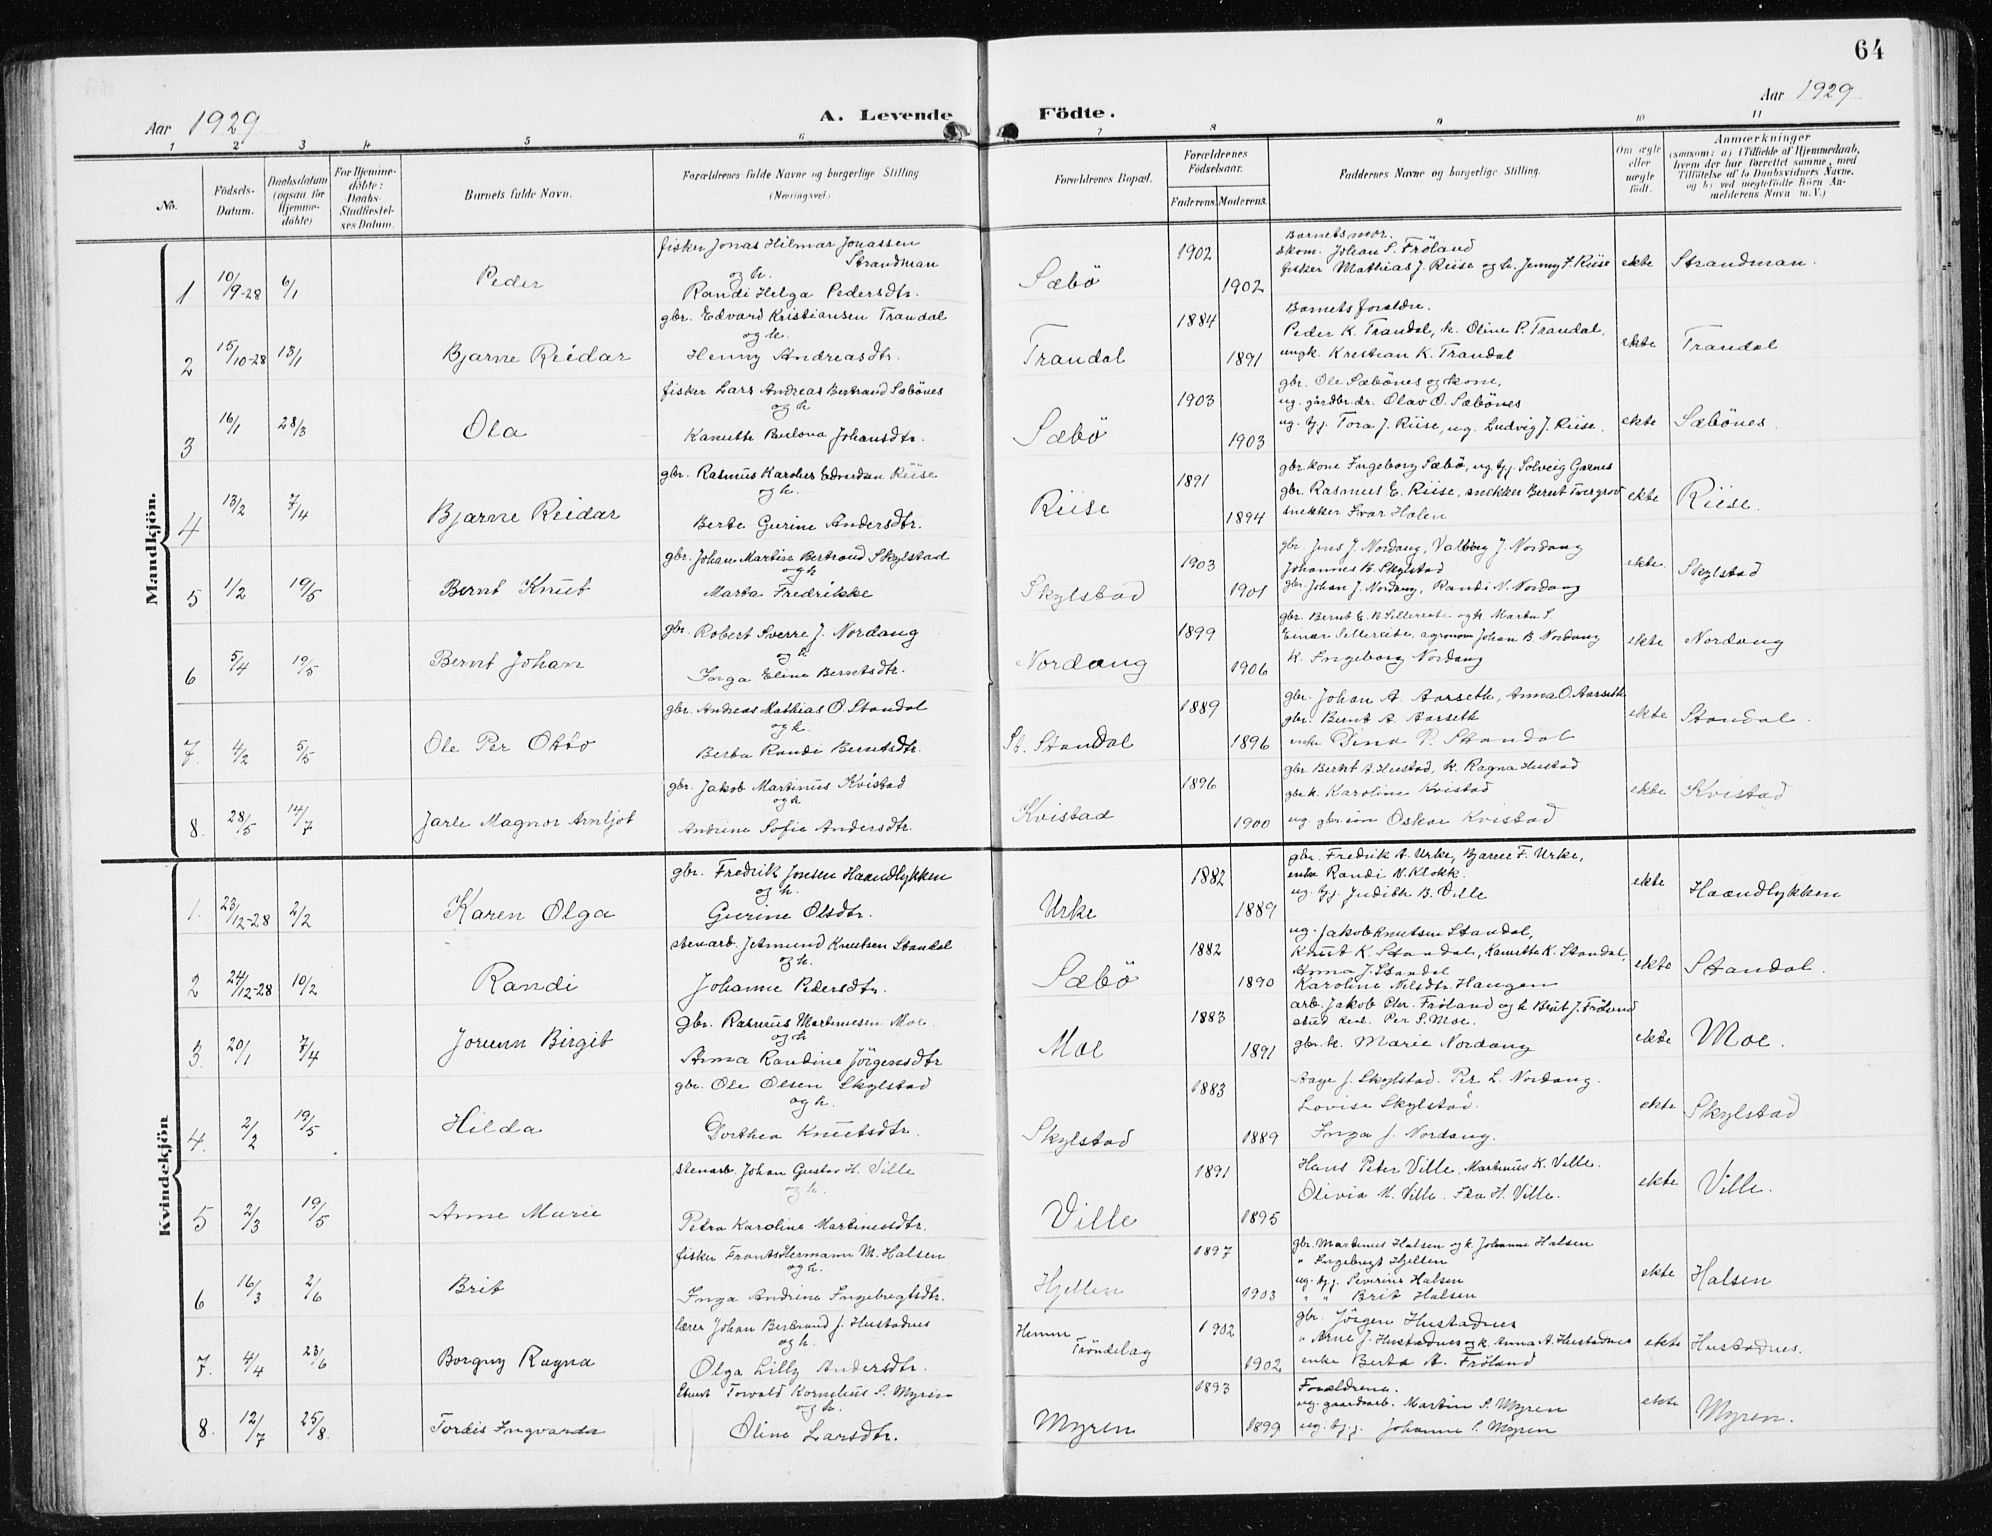 64
Aar 1929
A. Levende Födte.
Aar 1929
1 2 3 4 5 6 7 8 9 10 11
No.
Födsels-Datum.
Daabsdatum (ogsaa for Hjemmedöbte)
For Hjemmedöbte: Daabs-Stadfæstelses Datum.
Barnets fulde Navn.
Forældrenes fulde Navne og borgerlige Stilling (Næringsvei.)
Forældrenes Bopæl.
Forældrenes Födselsaar.
Faderens. Moderens.
Faddernes Navne og borgerlige Stilling.
Om ægte eller uægte födt.
Anmærkninger
(saasom: a) i Tilfælde af Hjemmedaab, hvem der har forrettet samme, med Tilföielse af to Daabsvidners Navne. og b) ved uægtefödte Börn Anmelderens Navn m. V.)
Mandkjön.
1 10/9-28 6/1 Peder
fisker Jonas Hilmar Jonassen Strandman
og h.
Randi Helga Pedersdtr.
Sæbö 1902 1902
Barnets mor.
skom. Johan S. Fröland
fisker Mathias J. Riise og h. Jenny J. Riise
ekte Strandman.
2 15/10-28 13/1 Bjarne Reidar
gbr. Edvard Kristiansen Trandal
og h.
Henny Andreasdtr.
Trandal 1884 1891
Barnets foreldre.
Peder K. Trandal, k. Oline P. Trandal.
ungk. Kristian K. Trandal
ekte Trandal
3 16/1 28/3 Ola
fisker Lars Andreas Bertrand Sæbönes
og h
Kanutte Johansdtr.
Sæbö 1903 1903
gbr. Ole Sæbönes og kone,
ug. gårdbr. dr. Olav O. Sæbönes
ug. tj. Tora J. Riise, ug. Ludvig J. Riise.
ekte Sæbönes.
4 13/2 7/4 Bjarne Reidar
gbr. Rasmus Karolus Riise
og h.
Berte Gurine Andersdtr.
Riise 1891 1894
gbr. kone Ingeborg Sæbö, ug. tj. Solveig Garnes
gbr. Rasmus E. Riise, snekker Bernt
snekker Ivar Holen
ekte Riise.
5 1/2 19/5 Bernt Knut
gbr. Johan Martin Bertrand Skylstad
og h
Marta Fredrikke
Skylstad 1903 1901
gbr. Jens J. Nordang, Valborg J. Nordang
Johannes B. Skylstad
gbr. Johan J. Nordang, Randi N. Nordang
ekte. Skylstad
6 5/4 19/5 Bernt Johan
gbr. Robert Sverre J. Nordang
og h
Inga Eline Berntsdtr.
Nordang 1899 1906
gbr. Bernt E. B. og k Marta S.
Einar agronom Johan B. Nordang
k. Ingeborg Nordang
ekte Nordang
7. 4/2 5/5 Ole Per Otto
gbr. Andreas Mathias O. Standal
og h.
Berta Randi Berntsdtr.
St. Standal 1889 1896
gbr. Johan A. Aarseth, Anna O. Aarseth
gbr. Bernt A. Aarseth
enke Dina P. Standal
ekte Standal.
8. 28/5 14/7 Jarle Magnor Arnljot
gbr. Jakob Martinus Kvistad
og h
Andrine Sofie Andersdtr.
Kvistad 1896 1900
gbr. Bernt A. Hustad, k. Ragna Hustad
gbr. k. Karoline Kvistad
ug. gbr.sön Oskar Kvistad
ekte Kvistad
Kvindekjön
1. 23/12-28 2/2 Karen Olga
gbr. Fredrik Jonsen Haandlykken
og h.
Gurine Olsdtr.
Urke 1882 1889
gbr. Fredrik A. Urke, Bjarne F. Urke,
enke Randi N. Klokk.
ug. tj. Judith B. Ville
ekte Haandlykken
2 24/12-28 10/2 Randi
stenarb. Jetmund Knutsen Standal
og h.
Johanne Pedersdtr.
Sæbö 1882 1890
ug. Jakob Knutsen Standal,
Knut K. Standal, Kanutte K. Standal,
Anna J. Standal
Karoline Nilsdtr. Haugen
ekte Standal.
3. 20/1 7/4 Jorunn Birgit
gbr. Rasmus Martinusen Moe.
og h
Anna Randine Jörgensdtr
Moe 1883 1891
arb. Jakob Fröland og k Berit J. Fröland
stud. Per S. Moe.
gbr. k. Marie Nordang
ekte Moe.
4. 2/2 19/5 Hilda
gbr. Ole Olsen Skylstad
og h.
Dorthea Knutsdtr.
Skylstad 1883 1889
Aage J. Skylstad. Per L. Nordang.
Lovise Skylstad.
Inga J. Nordang.
ekte Skylstad
5 2/3 19/5 Anne Marie
stenarb. Johan Gustav H. Ville
og h.
Petra Karoline Martinusdtr.
Ville 1891 1895
Hans Peter Ville. Martinus K. Ville.
Olivia M. Ville. Fra H. Ville.
ekte Ville.
6 16/3 2/6 Brit
fisker Frants Hermann M. Halsen
og h.
Inga Andrine Ingebregtsdtr.
Hjellen 1897 1903
gbr. Martinus Halsen og k. Johanne Halsen
" Ingebregt Hjellen
ug. tj. Severine Halsen
" " Brit Halsen
ekte Halsen
7. 4/4 23/6 Borgny Ragna
lærer Johan Bertrand J. Hustadnes
og h.
Olga Lilly Andersdtr.
Hemne Tröndelag 1902 1902
gbr. Jörgen Hustadnes
" Arne J. Hustadnes og k. Anna A. Hustadnes
enke Berta A. Fröland
ekte Hustadnes.
8. 12/7 25/8. Tordis Ingvarda
Torvald Kornelius S. Myren
og h.
Oline Larsdtr.
Myren 1893 1899
Forældrene.
ug. gaardarb. Martin S. Myren
ug. tj. Johanne S. Myren
ekte Myren.